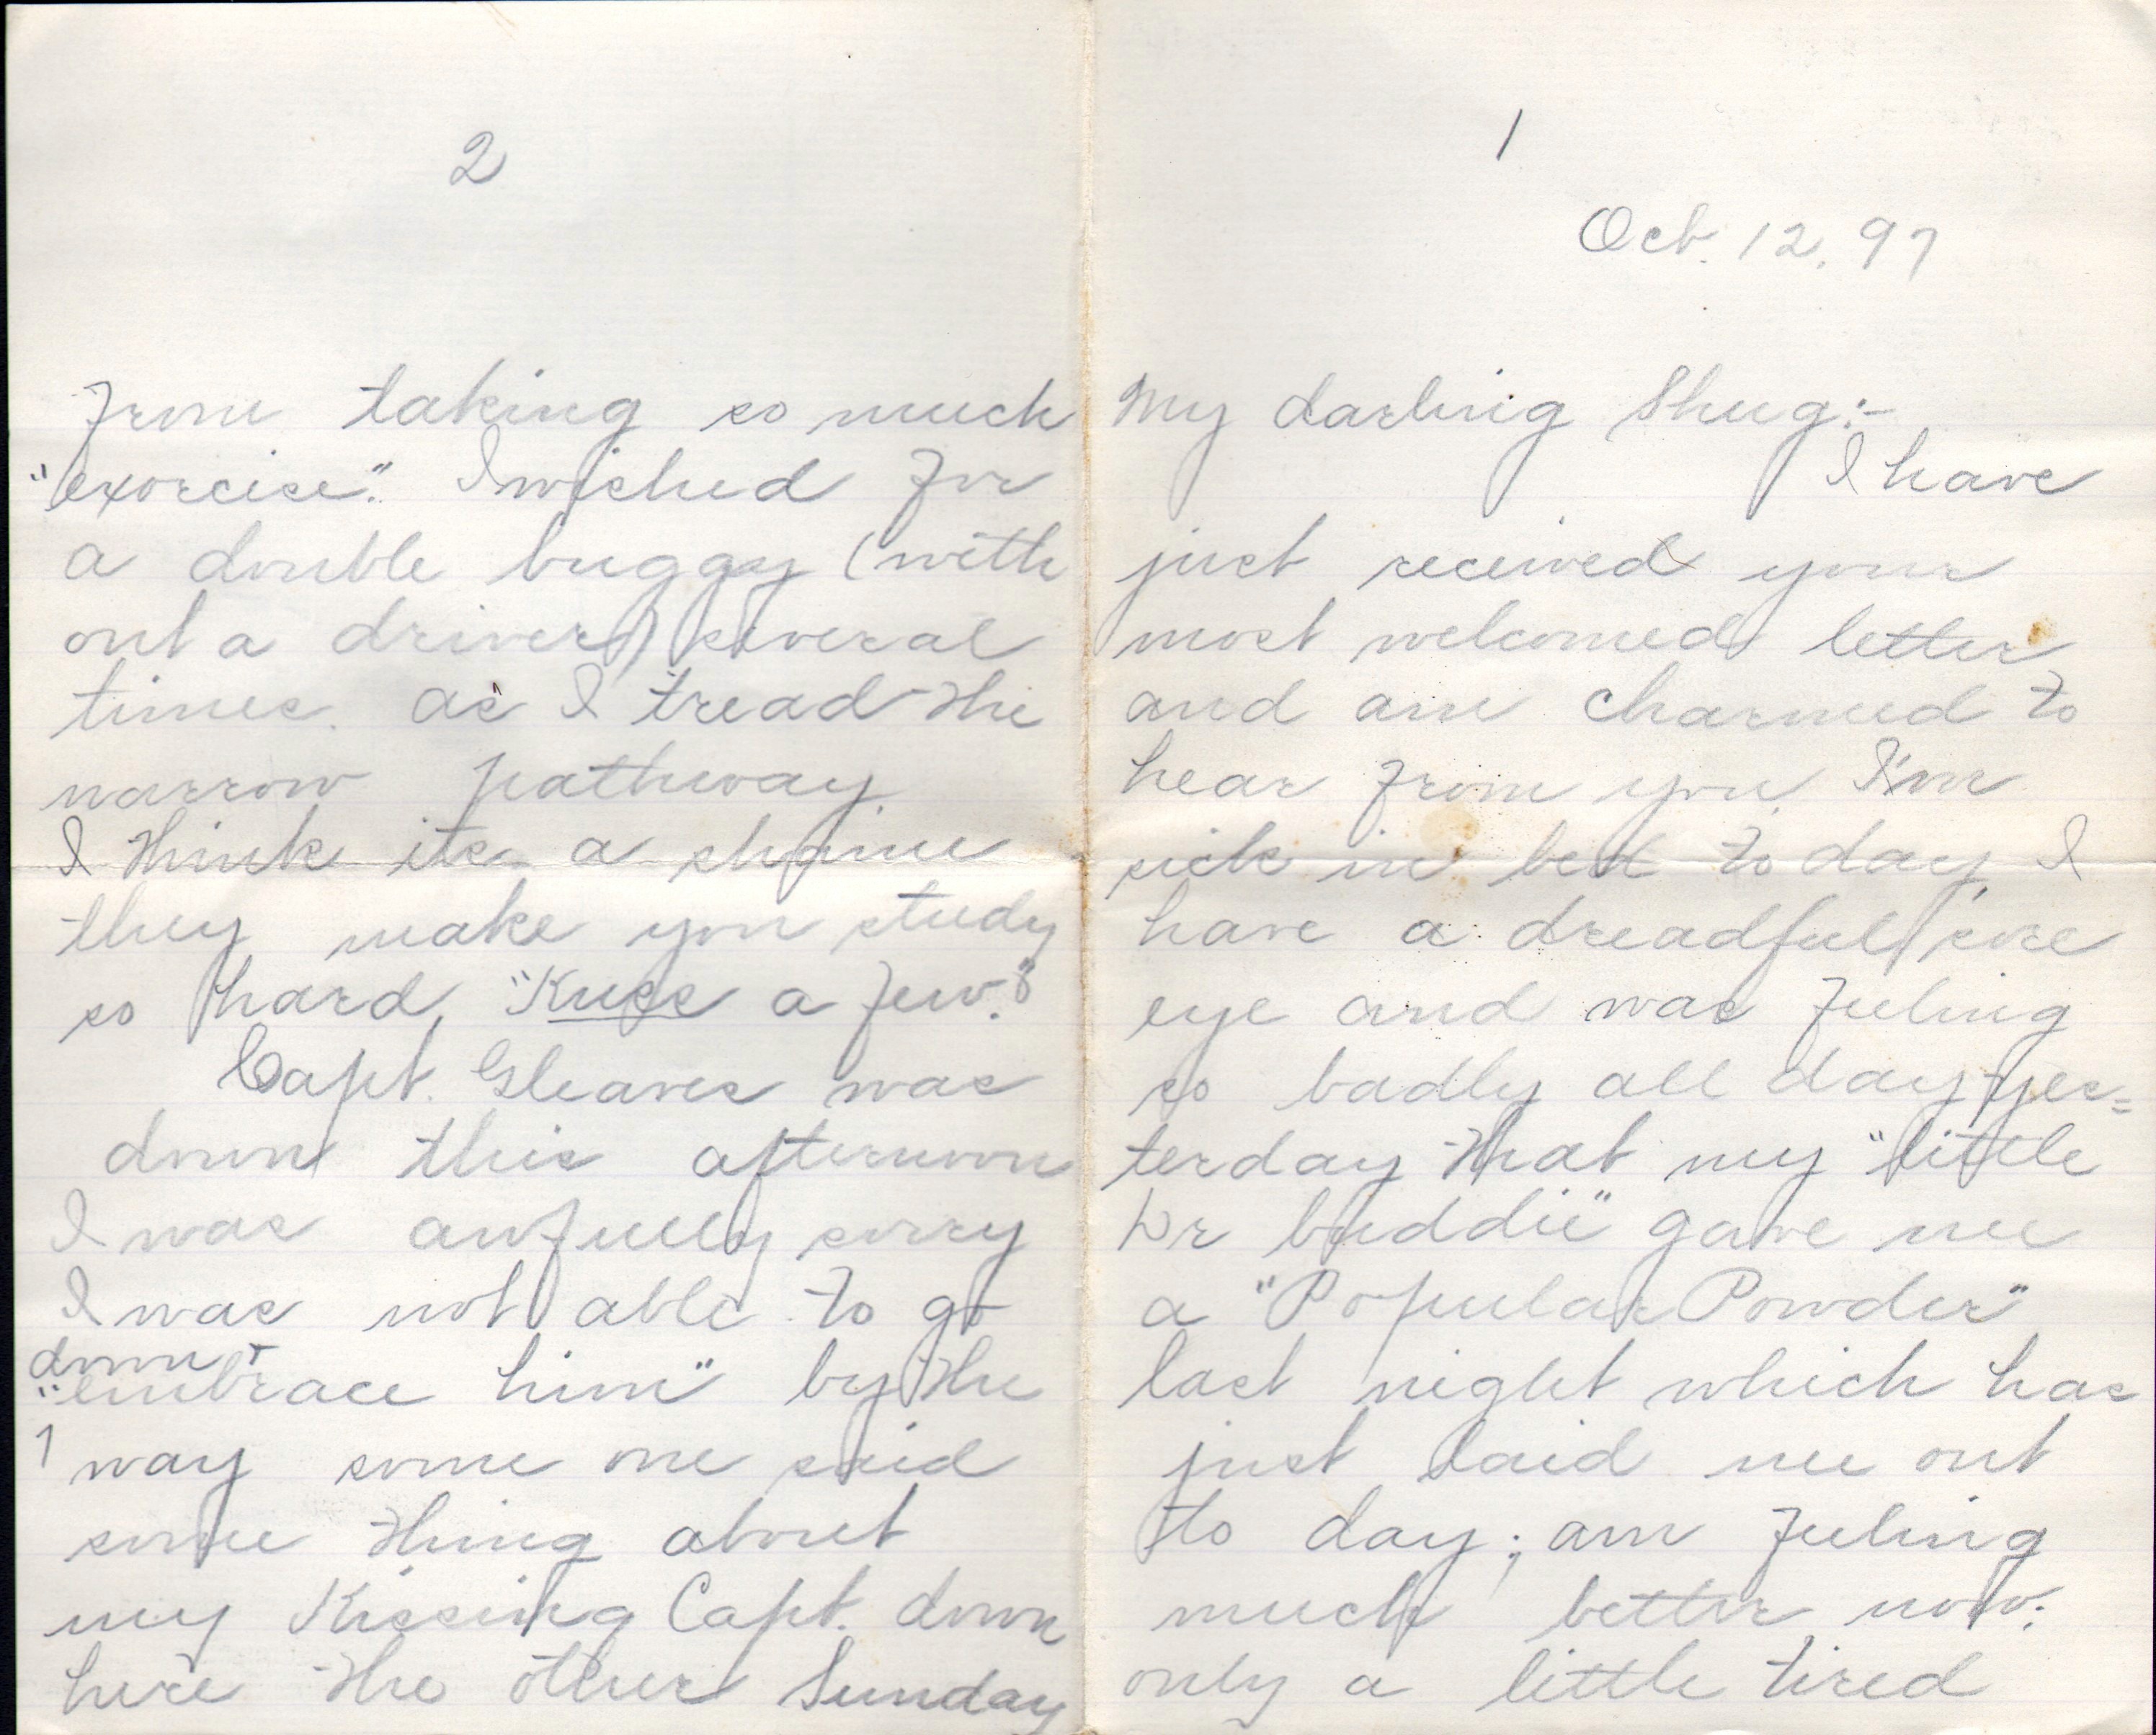 1
Oct. 12, 97
My darling Shug:-
I have
just received your
most welcomed letter
and am charmed to
hear from you. I'm
sick in bed to day, I
have a dreadful sore
eye and was feeling
so badly all day yes=
terday that my "little
Dr buddie" gave me
a "Popular Powder"
last night which has
just laid me out
to day; am feeling
much better now.
only a little tired
2
from taking so much
"exorcise." I wished for
a double buggy (with
out a driver) several
times. as I tread the
narrow pathway.
I think its a shame
they make you study
so hard, "Kuss a few."
Capt. Gleaves was
down this afternoon
I was awfully sorry
I was not able to go
down &
"embrace him" by the
way some one said
some thing about
my Kissing Capt. down
here the other Sunday